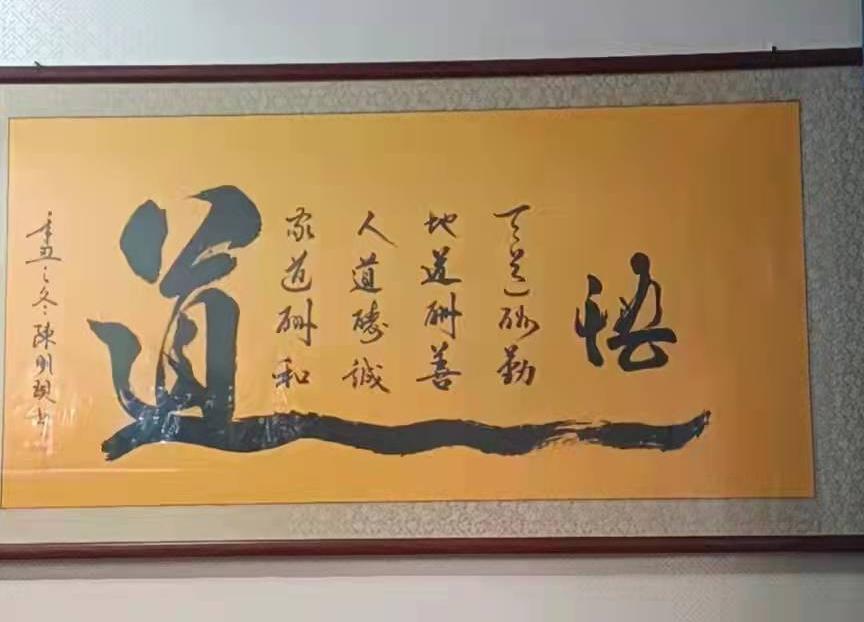 悟
天道酬勤
地道酬善
人道酬誠
家道酬和
道
辛丑之冬陳明